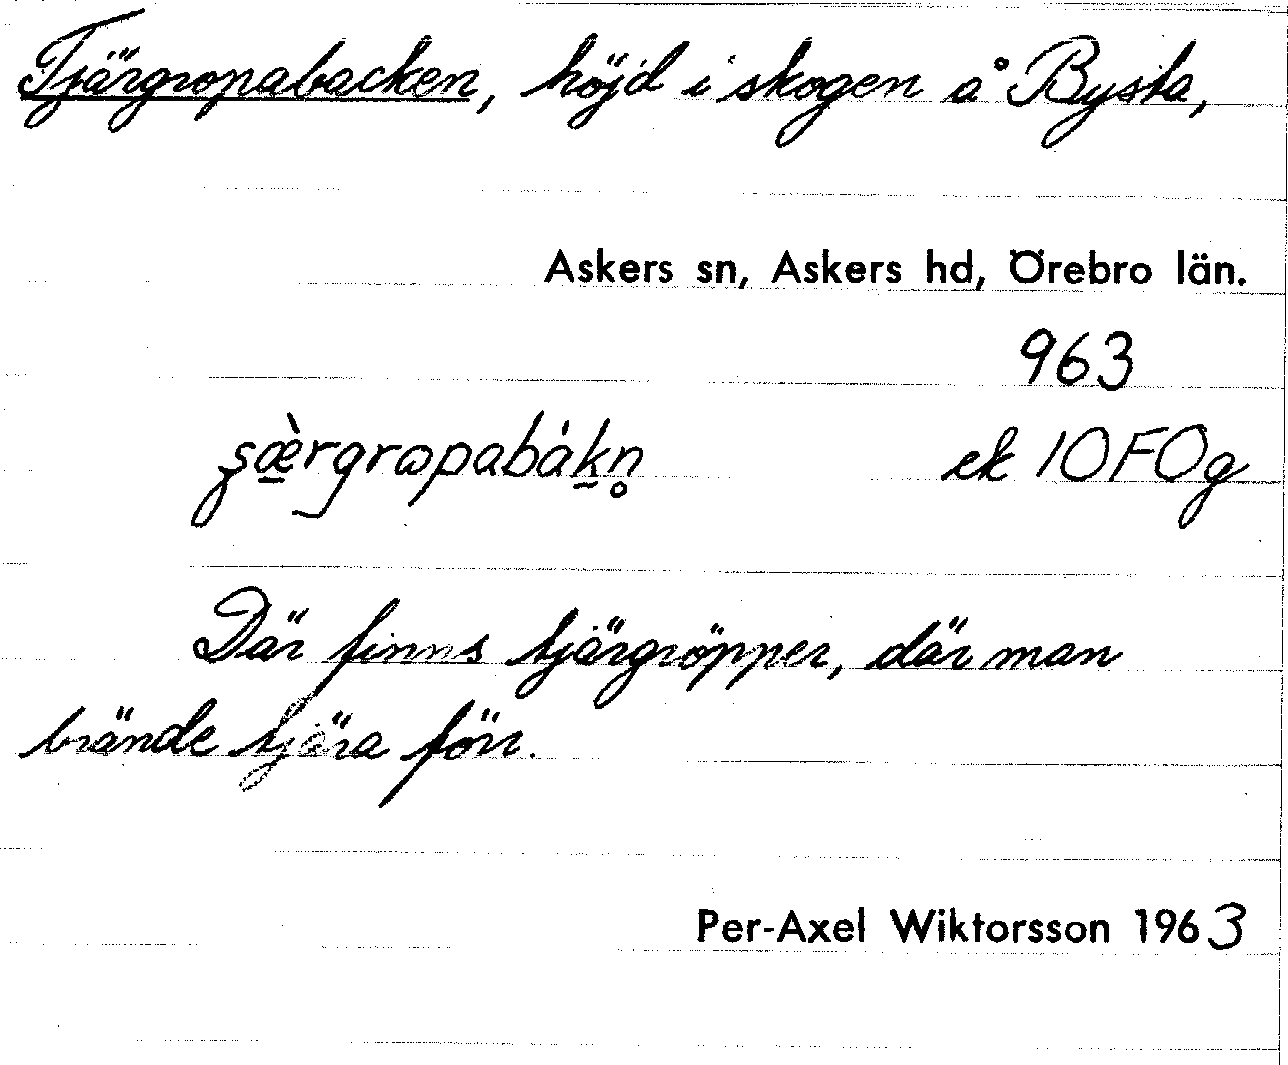 Tjärgropabacken, höjd i skogen å Bysta,
Askers sn, Askers hd, Örebro län.
963
ek 10FOg
Där finns tjärgröpper, där man
brände tjära förr.
Per-Axel Wiktorsson 1963